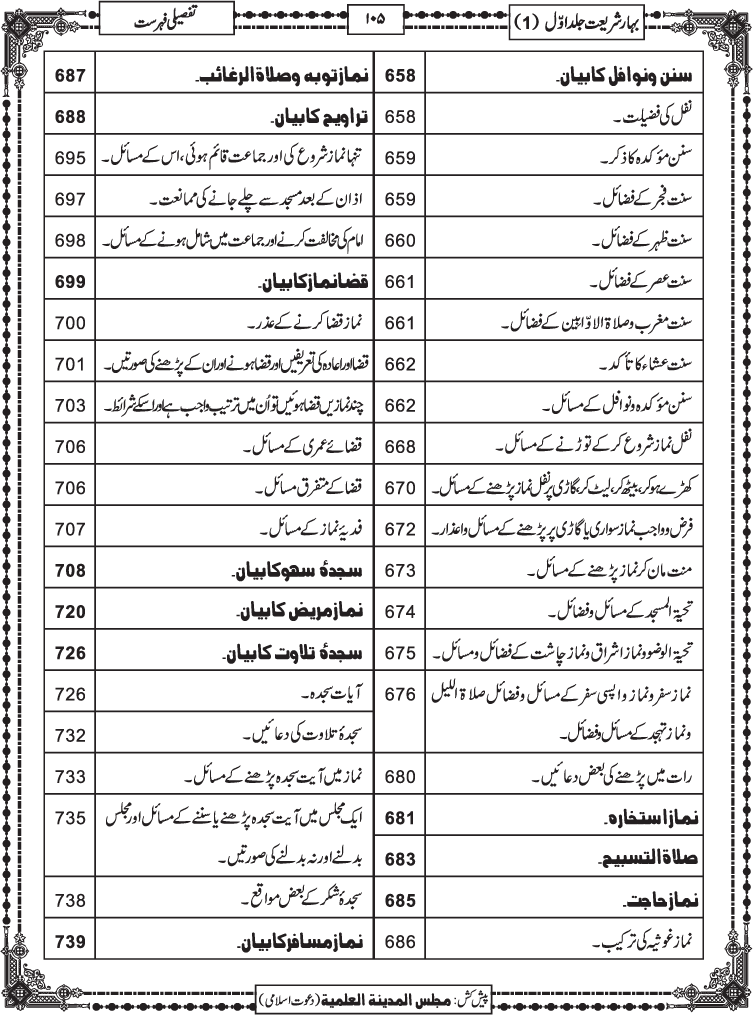 بہارِ شریعت جلد اوّل (1)
۱۰۵
تفصیلی فہرست
سنن ونوافل کا بیان۔ 658
نفل کی فضیلت۔ 658
سنن مؤکدہ کا ذکر۔ 659
سنت فجر کے فضائل۔ 659
سنت ظہر کے فضائل۔ 660
سنت عصر کے فضائل۔ 661
سنت مغرب وصلاۃ الاوّابین کے فضائل۔ 661
سنت عشاء کا تأکد۔ 662
سنن مؤکدہ ونوافل کے مسائل۔ 662
نفل نماز شروع کر کے توڑنے کے مسائل۔ 668
کھڑے ہو کر، بیٹھ کر، لیٹ کر، گاڑی پر نفل نماز پڑھنے کے مسائل۔ 670
فرض وواجب نماز سواری یا گاڑی پر پڑھنے کے مسائل واعذار۔ 672
منت مان کر نماز پڑھنے کے مسائل۔ 673
تحیۃ المسجد کے مسائل وفضائل۔ 674
تحیۃ الوضوونماز اشراق ونماز چاشت کے فضائل ومسائل۔ 675
نماز سفر ونماز واپسی سفر کے مسائل وفضائل صلاۃ اللیل 676
ونماز تہجد کے مسائل وفضائل۔
رات میں پڑھنے کی بعض دعائیں۔ 680
نماز استخارہ۔ 681
صلاۃ التسبیح۔ 683
نماز حاجت۔ 685
نماز غوثیہ کی ترکیب۔ 686
نماز توبہ وصلاۃ الرغائب۔ 687
تراویح کا بیان۔ 688
تنہا نماز شروع کی اور جماعت قائم ہوئی، اس کے مسائل۔ 695
اذان کے بعد مسجد سے چلے جانے کی ممانعت۔ 697
امام کی مخالفت کرنے اور جماعت میں شامل ہونے کے مسائل۔ 698
قضا نماز کا بیان۔ 699
نماز قضا کرنے کے عذر۔ 700
قضا اور اعادہ کی تعریفیں اور قضا ہونے اور ان کے پڑھنے کی صورتیں۔ 701
چند نمازیں قضا ہوئیں تو اُن میں ترتیب واجب ہے اور اسکے شرائط۔ 703
قضائے عمری کے مسائل۔ 706
قضا کے متفرق مسائل۔ 706
فدیۂ نماز کے مسائل۔ 707
سجدۂ سھو کا بیان۔ 708
نماز مریض کا بیان۔ 720
سجدۂ تلاوت کا بیان۔ 726
آیات سجدہ۔ 726
سجدۂ تلاوت کی دعائیں۔ 732
نماز میں آیت سجدہ پڑھنے کے مسائل۔ 733
ایک مجلس میں آیت سجدہ پڑھنے یا سننے کے مسائل اور مجلس 735
بدلنے اور نہ بدلنے کی صورتیں۔
سجدۂ شکر کے بعض مواقع۔ 738
نماز مسافر کا بیان۔ 739
پیش کش: مجلس المدینۃ العلمیۃ (دعوت اسلامی)